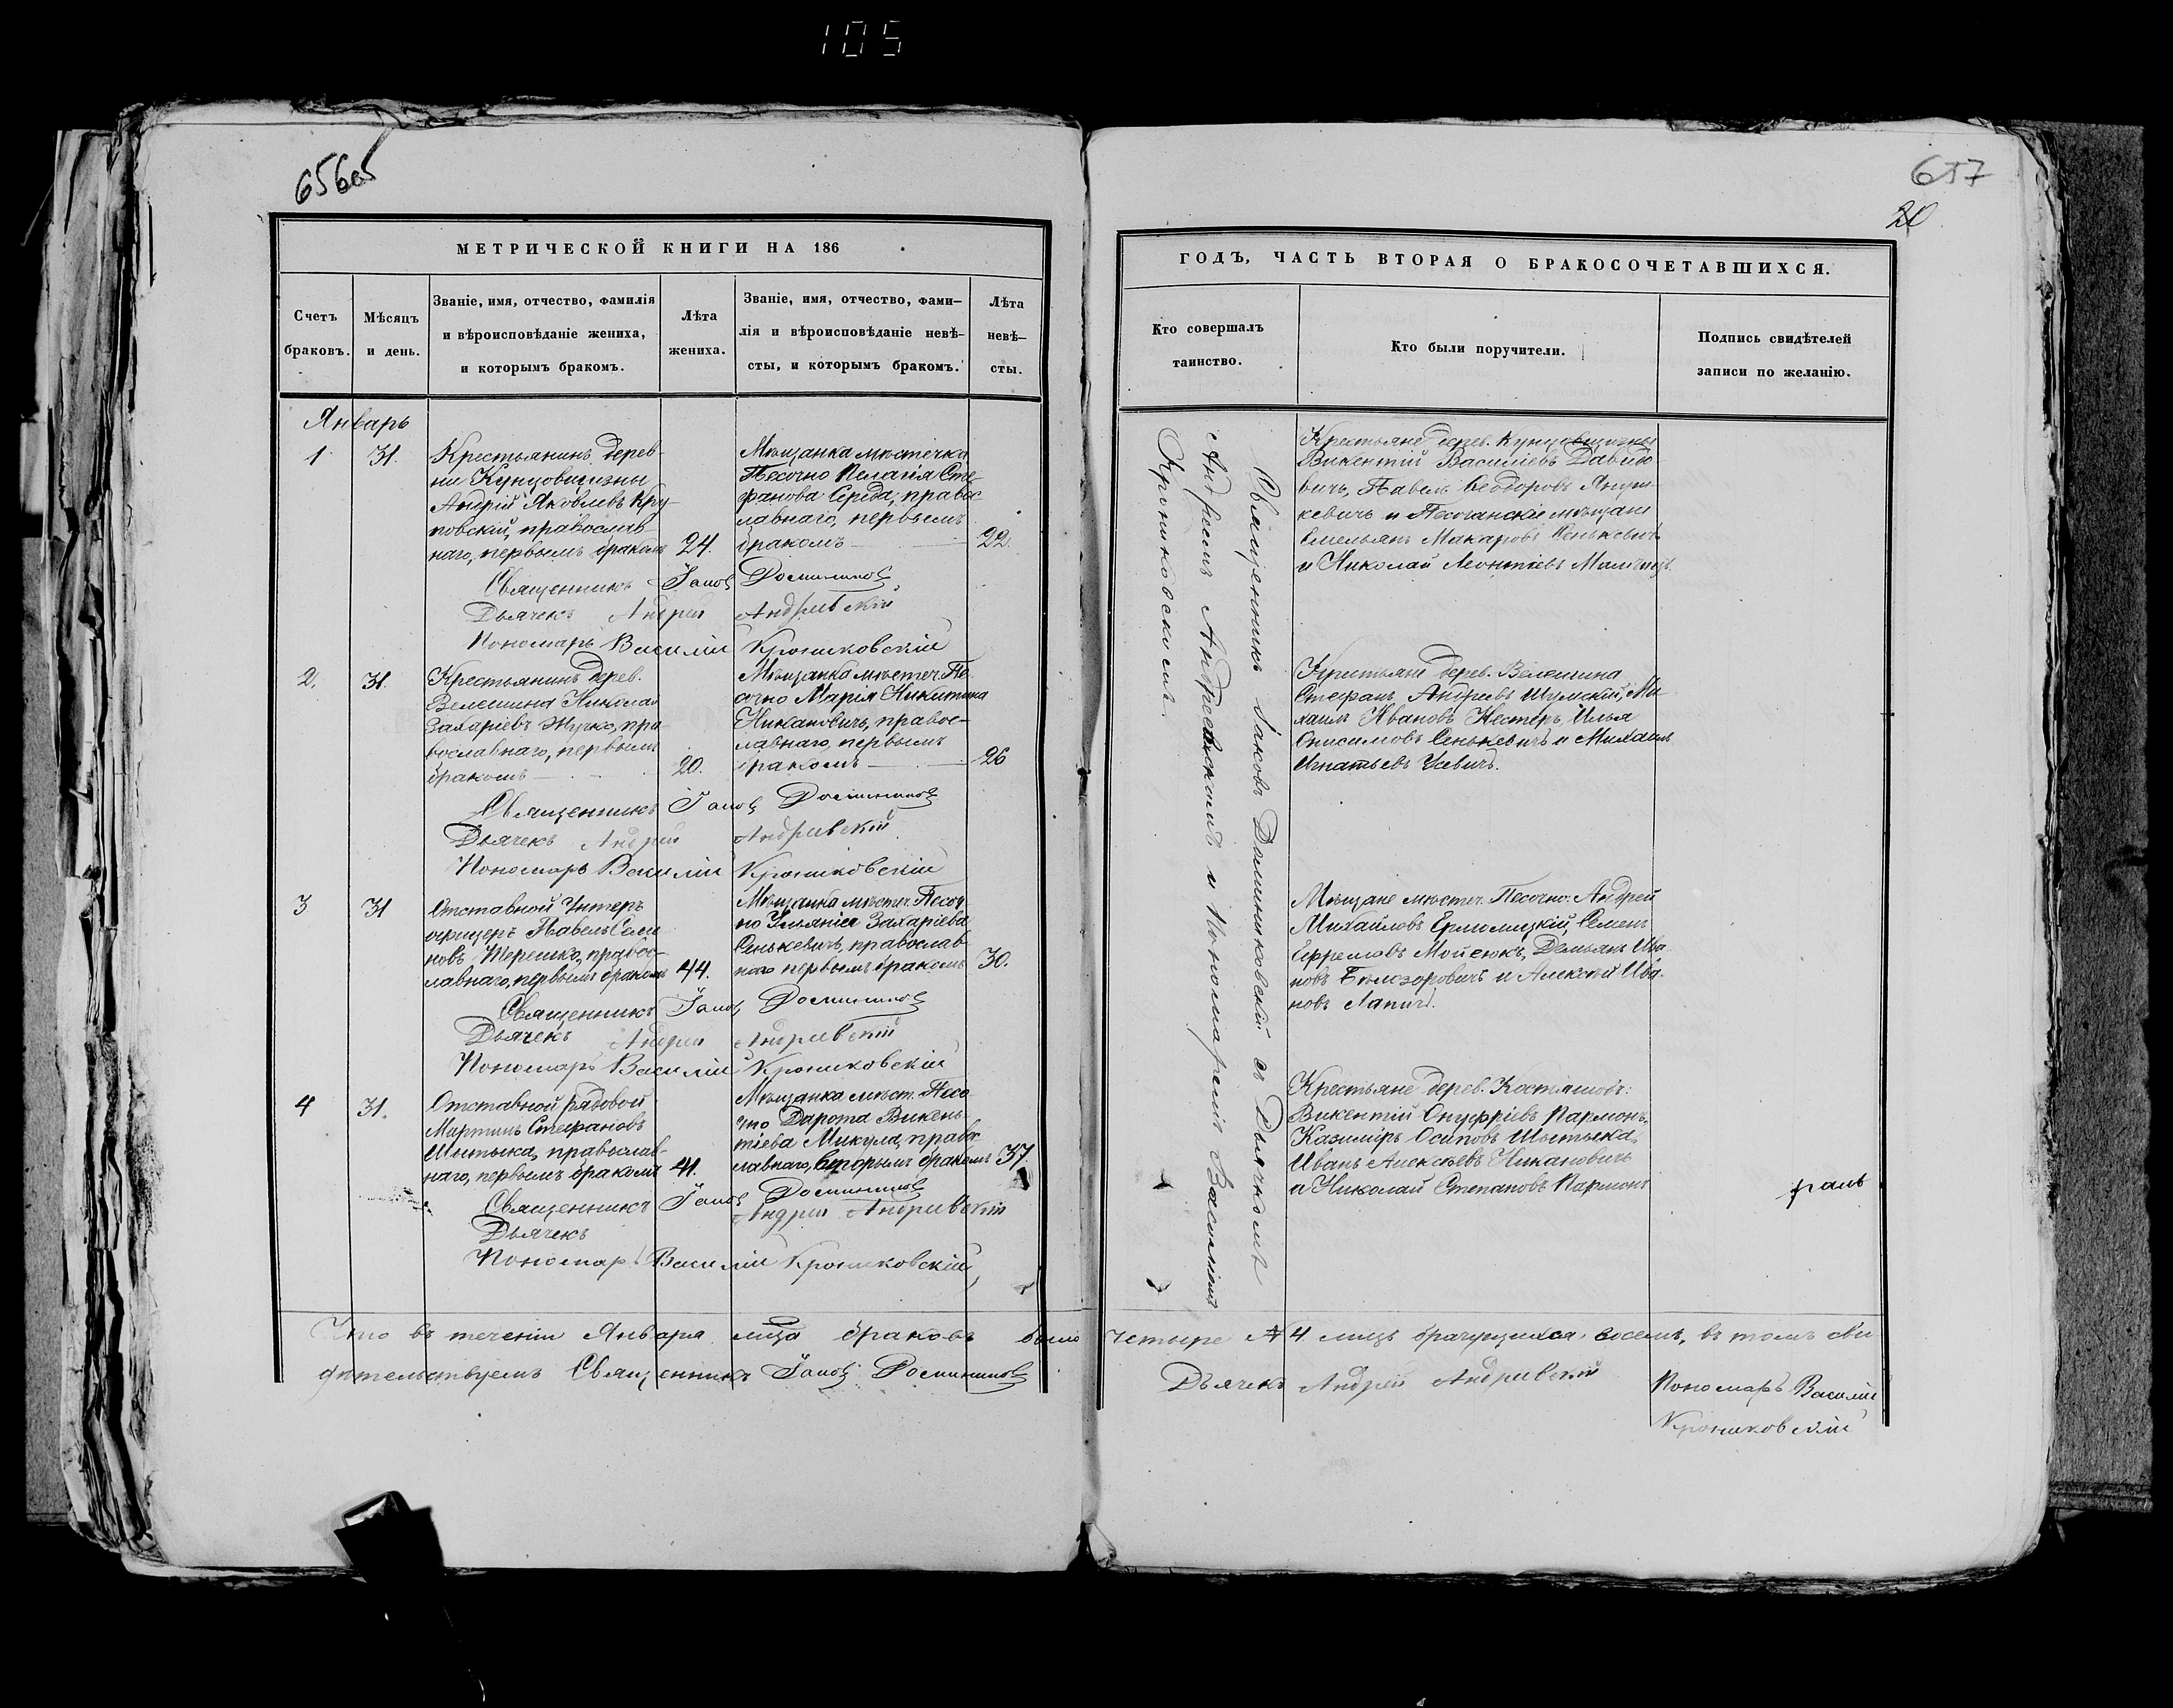 105
656об
МЕТРИЧЕСКОЙ КНИГИ НА 186
Счетъ
браковъ.
Мѣсяцъ
и день.
Званіе, имя, отчество, фамилія
и вѣроисповѣданіе жениха,
и которымъ бракомъ.
Лѣта
жениха.
Званіе, имя, отчество, фами–
лія и вѣроисповѣданіе невѣ–
сты, и которымъ бракомъ.
Лѣта
невѣ–
сты.
Январь
1
31.
Крестьянинъ дерев-
ни Кунцовщизны
Андрій Яковлевъ Кру-
повскій, православ-
наго, первымъ бракомъ
24.
Мѣщанка мѣстечка
Песочно Пелагія Сте-
фанова Середа, правос
лавнаго, первымъ
бракомъ
22.
Священникъ Іаковъ
Дьячекъ Андрей Андріевскій
Пономарь Василій Крониковскій
2.
31.
Крестьянинъ дерев.
Велешина Николай
Захаріевъ Жучко, пра
вославнаго, первымъ
бракомъ
20.
Мѣщанка мѣстеч. Пе
сочно Марія Никитина
Никановичъ, правос-
лавнаго, первымъ
бракомъ
26
Священникъ Іаковъ
Дьячекъ Андрей Андріевскій
Пономарь Василій Крониковскій
3
31
Отставной Унтеръ
офицеръ Павелъ Семе
новъ Терешко, правос-
лавнаго, первымъ бракомъ
44.
Мѣщанка мѣстеч. Песоч
но Ульянія Захаріева
Сенькевичъ, православ
наго первымъ бракомъ
30.
Священникъ Іаковъ
Дьячекъ Андрей Андріевскій
Пономарь Василій Крониковскій
4
31.
Отставной рядовой
Мартинъ Стефановъ
Шытыка, православ-
наго, первымъ бракомъ
41.
Мѣщанка мѣст. Песо
чно Дарота Викень
тіева Микула, правос
лавнаго, вторымъ бракомъ
37.
Священникъ Іаковъ
Дьячекъ Андрей Андріевскій
Пономарь Василій Крониковскій
Что въ теченіи Января м-ца браковъ было
дѣтельствуемъ Священникъ Іаковъ
657
20
ГОДЪ, ЧАСТЬ ВТОРАЯ О БРАКОСОЧЕТАВШИХСЯ.
Кто совершалъ
таинство.
Кто были поручители.
Подпись свидѣтелей
записи по желанію.
Священникъ Іаковъ Доминиковскій съ Дьячкомъ
Андреемъ Андріевскимъ и Пономаремъ Василіемъ
Крониковскимъ.
Крестьяне дерев. Кунцовщизны
Викентій Василіевъ Давидо-
вичъ, Павелъ Ѳеодоровъ
кевичъ и Песочанскіе мѣщане
Емельянъ Макаровъ Сенькевичъ
и Николай Леонтіевъ
Крестьяне дерев. Велешина
Стефанъ Андреевъ Шумскій, Ми-
хаилъ Ивановъ Нестеръ, Илья
Онисимовъ Сенькевичъ и Михаилъ
Игнатьевъ Усевичъ.
Мѣщане мѣстеч. Песочно: Андрей
Михайловъ Ермолицкій, Семенъ
Ефремовъ Мойсюкъ, Демьянъ Ива
новъ и Алексѣй Ива-
новъ Лапичъ.
Крестьяне дерев. Костяшовъ:
Викентій Онуфріевъ Пармонъ,
Казиміръ Осиповъ Шытыка,
Иванъ Алексѣевъ Никановичъ
и Николай Степановъ Пармонъ
четыре № 4 лицъ брачущихся восемь, въ томъ сви
Дьячекъ Андрей Андріевскій
Пономарь Василій
Крониковскій